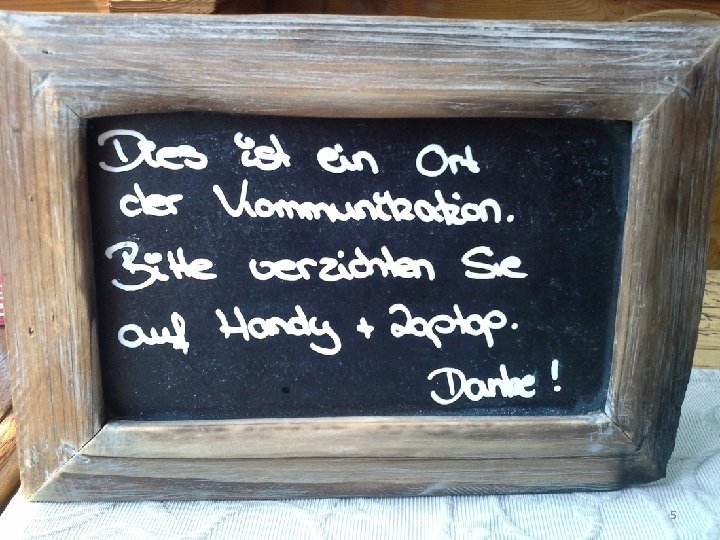 Dies ist ein Ort
der Kommunikation.
Bitte verzichten Sie
auf Handy + Laptop.
Danke!
5